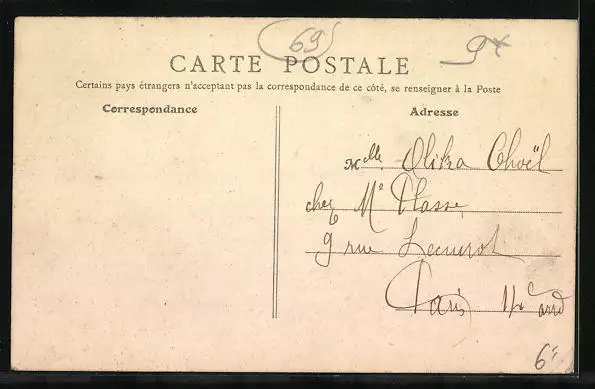 69
9
CARTE POSTALE
Certains pays étrangers n'acceptant pas la correspondance de ce côté, se renseigner à la Poste
Correspondance
Adresse
Melle
chez Me
9 rue Lecuirot
Paris 14e arrd
6